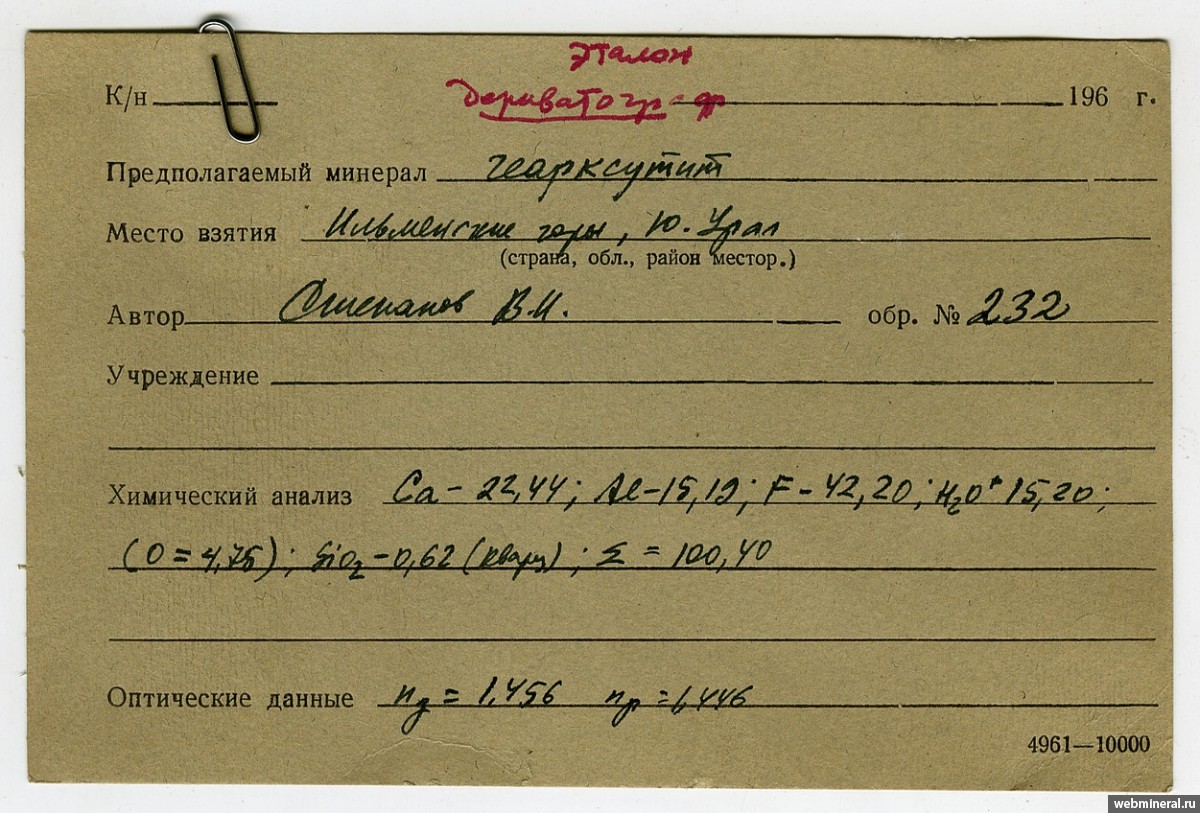 эталон
К/н дериватограф 196 г.
Предполагаемый минерал геарксутит
Место взятия Ильменские горы, Ю. Урал
(страна, обл., район местор.)
Автор Степанов В.И. обр. № 232
Учреждение
Химический анализ Ca – 22,44; Al – 15,19; F – 42,20; H₂O⁺ 15,20;
(O = 4,75); SiO₂ – 0,62 (кварц); Σ = 100,40
Оптические данные ng = 1,456 np = 1,446
4961—10000
webmineral.ru